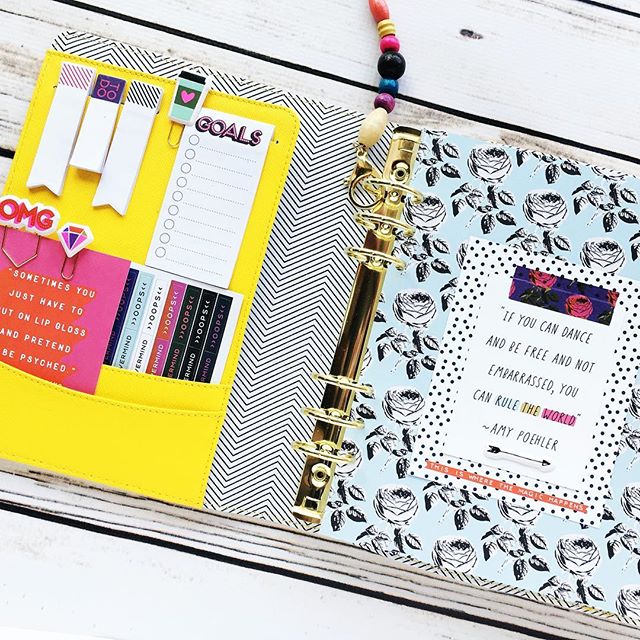 TO
DO
GOALS
OMG
"SOMETIMES YOU
JUST HAVE TO
PUT ON LIP GLOSS
AND PRETEND
TO BE PSYCHED."
>>OOPS<<
>>OOPS<<
>>OOPS<<
>>OOPS<<
>>OOPS<<
NEVERMIND
NEVERMIND
NEVERMIND
NEVERMIND
"IF YOU CAN DANCE
AND BE FREE AND NOT
EMBARRASSED, YOU
CAN RULE THE WORLD"
~AMY POEHLER
THIS IS WHERE THE MAGIC HAPPENS.